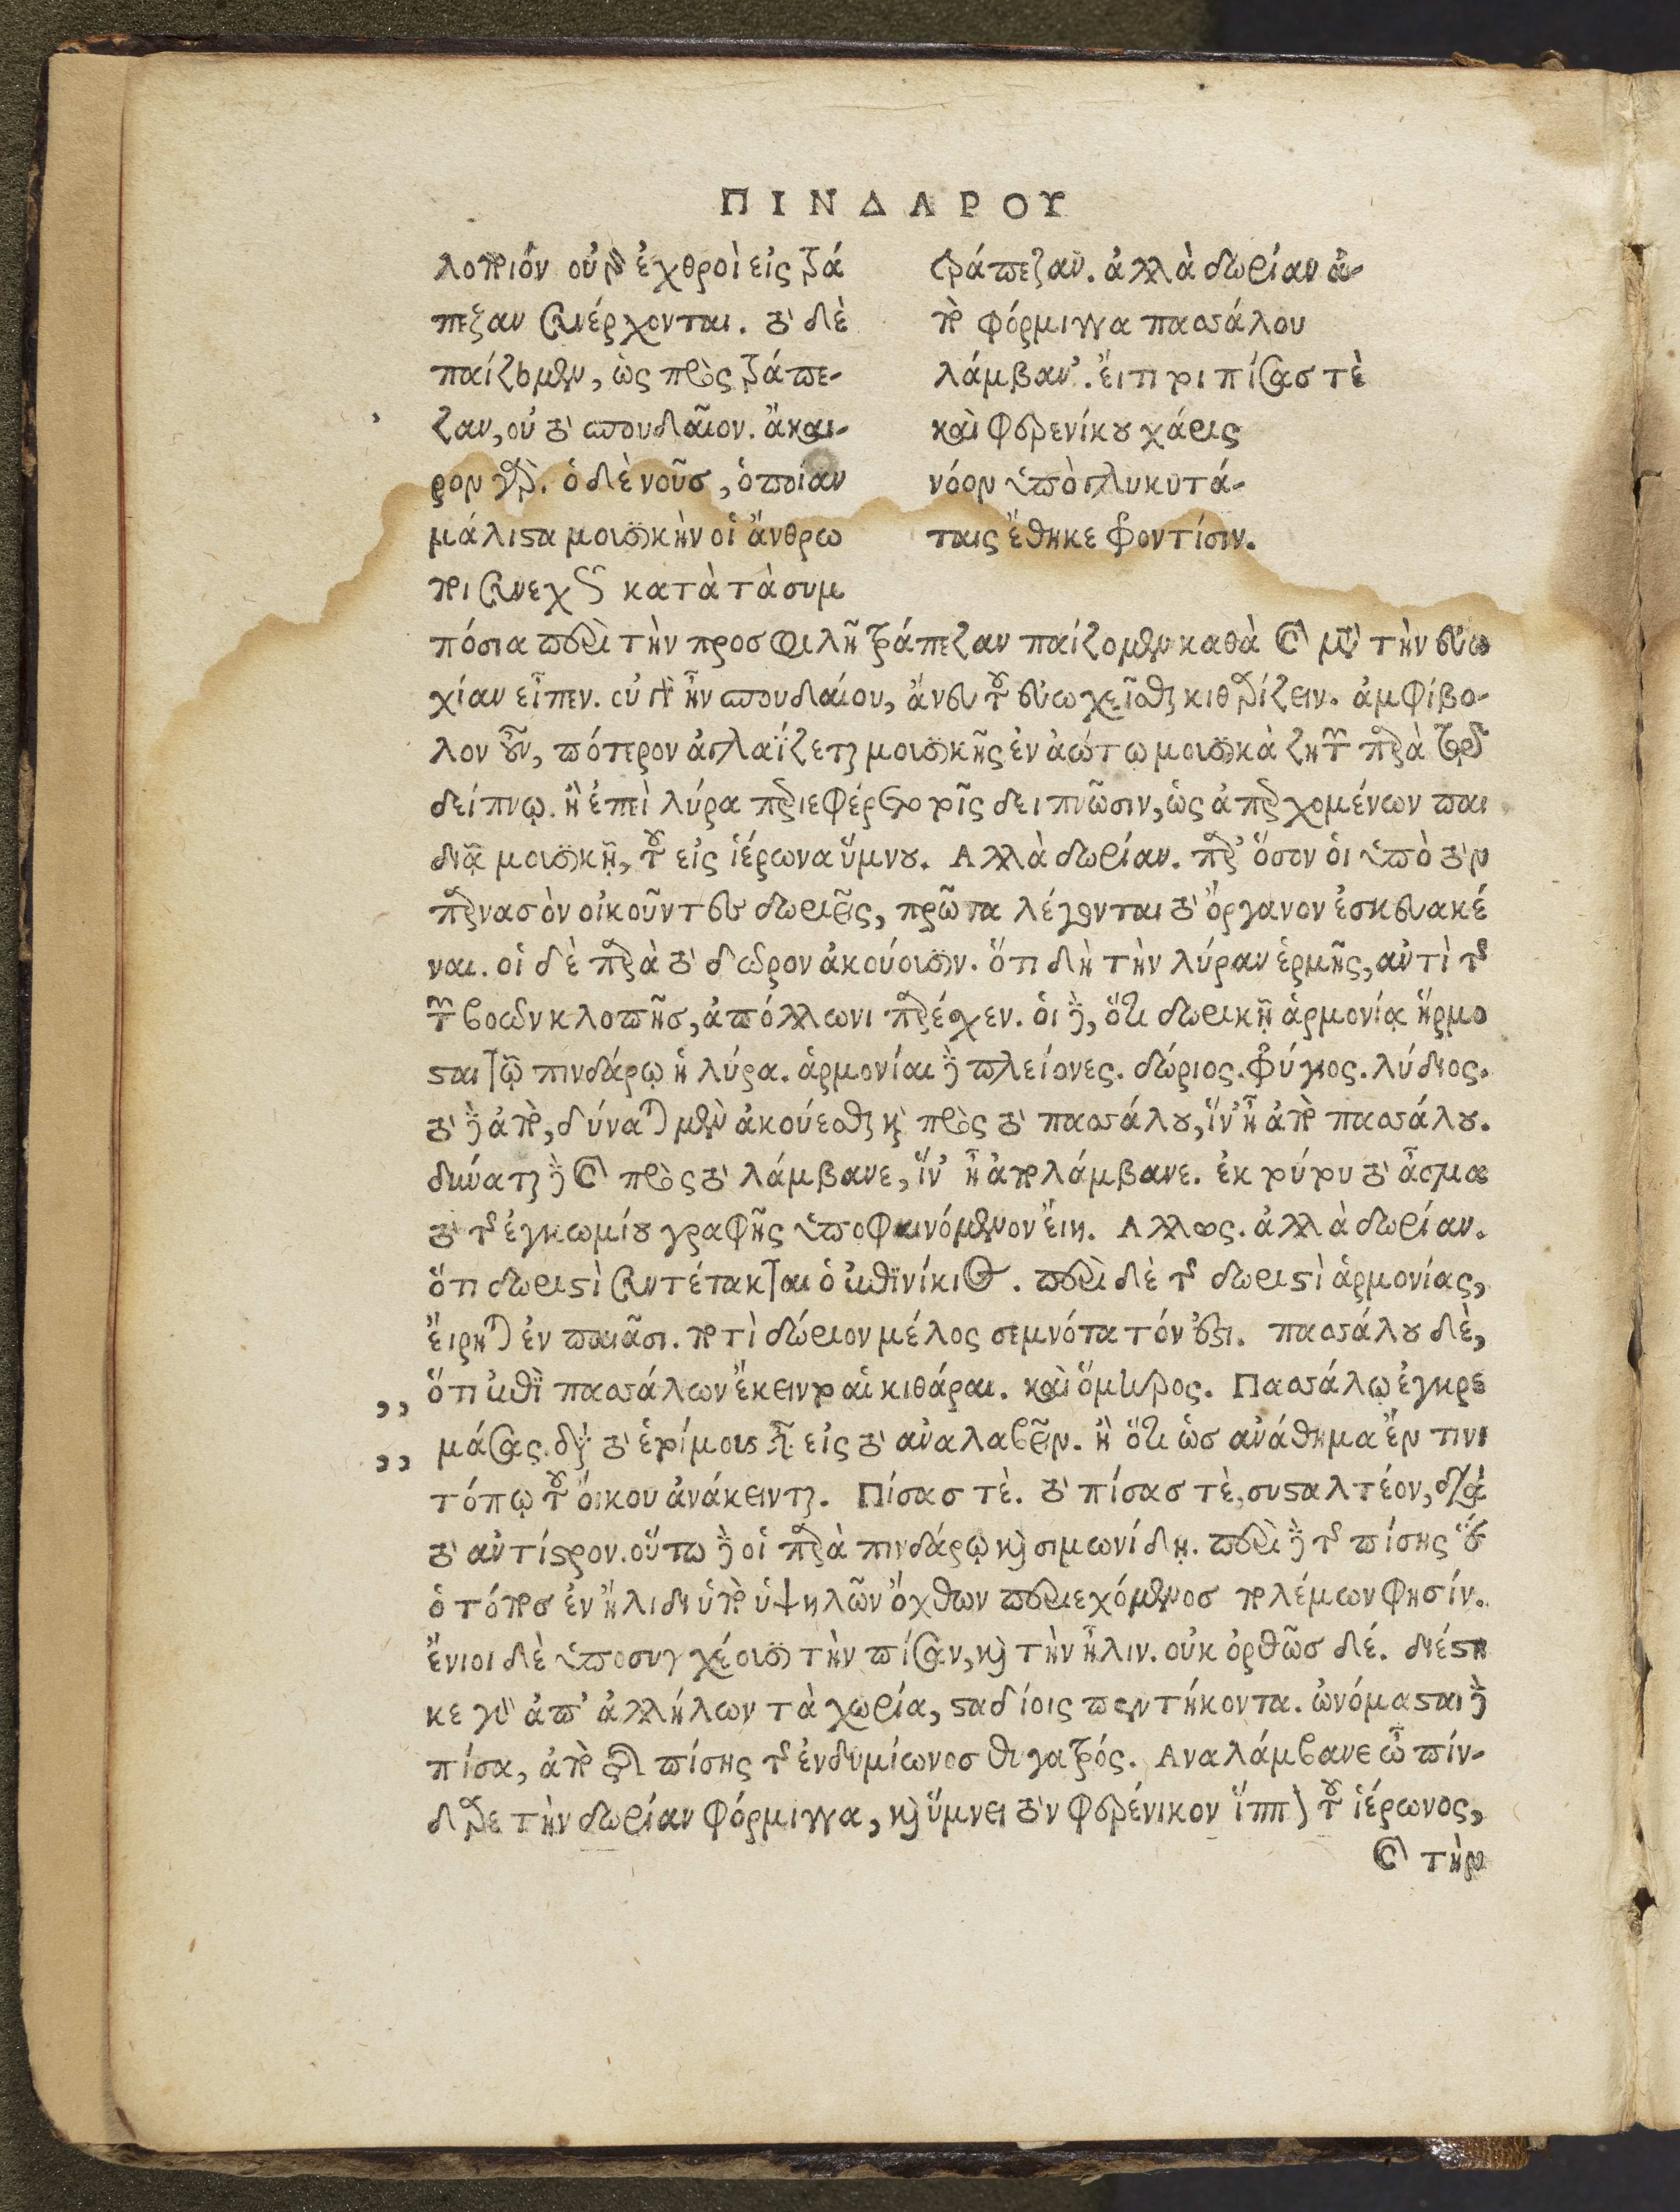 ΠΙΝΔΑΡΟΥ
λοποιόν οὐδ' ἐχθροὶ εἰς τρά
πεζαν συνέρχονται. τὸ δὲ
παίζομεν, ὡς πρὸς τράπε-
ζαν, οὐ τὸ σπουδαῖον. ἄκαι-
ρον γὰρ. ὁ δὲ νοῦσ, ὁποίαν
μάλιστα μουσικὴν οἱ ἄνθρω
ποι συνεχῶς κατὰ τὰ συμ
τράπεζαν. ἀλλὰ δωρίαν ἀ-
πὸ φόρμιγγα πασσάλου
λάμβαν'. εἴ τι τοι πίσας τὲ
καὶ φερενίκου χάρις
νόον ὑπὸ γλυκυτά-
ταις ἔθηκε φροντίσιν.
πόσια περὶ τὴν προσφιλῆ τράπεζαν παίζομεν καθὰ καὶ μετὰ τὴν εὐω
χίαν εἶπεν. οὐ γὰρ ἦν σπουδαίου, ἄνευ τοῦ εὐωχεῖσθαι κιθαρίζειν. ἀμφίβο-
λον οὖν, πότερον ἀγλαΐζεται μουσικῆς ἐν ἀώτω μουσικὰ ζητῶν παρὰ τῷ
δείπνῳ. ἢ ἐπεὶ λύρα περιεφέρετο τοῖς δειπνῶσιν, ὡς ἀπαρχομένων παι
διᾷ μουσικῇ, τοῦ εἰς ἱέρωνα ὕμνου. Αλλὰ δωρίαν. παρ' ὅσον οἱ ὑπὸ τὸν
παρνασὸν οἰκοῦντες δωριεῖς, πρῶτα λέγονται τὸ ὄργανον ἐσκευακέ
ναι. οἱ δὲ παρὰ τὸ δῶρον ἀκούουσιν. ὅτι δὴ τὴν λύραν ἑρμῆς, αὐτὶ τῆς
τῶν βοῶν κλοπῆσ, ἀπόλλωνι παρέσχεν. οἱ δὲ, ὅτι δωρικῇ ἁρμονίᾳ ἥρμο
σται τῷ πινδάρῳ ἡ λύρα. ἁρμονίαι δὲ πλείονες. δώριος. φρύγιος. λύδιος.
τὸ δὲ ἀπὸ, δύναται μὲν ἀκούεσθαι καὶ πρὸς τὸ πασσάλου, ἵν' ἦ ἀπὸ πασσάλου.
δύναται δὲ καὶ πρὸς τὸ λάμβανε, ἵν' ἦ ἀπολάμβανε. ἐκ τούτου τὸ ᾆσμα
τὸ τῆς ἐγκωμίου γραφῆς ὑποφαινόμενον εἴη. Αλλως. ἀλλὰ δωρίαν.
ὅτι δωριστὶ συντέτακται ὁ ἐπινίκιος. περὶ δὲ τῆς δωριστὶ ἁρμονίας,
εἴρηται ἐν παιᾶσι. ὅτι δώριον μέλος σεμνότατόν ἐστι. πασσάλου δὲ,
,, ὅτι ἐπὶ πασσάλων ἔκειντο αἱ κιθάραι. καὶ ὅμηρος. Πασσάλῳ ἐγκρε
,, μάσας. διὰ τὸ ἑτοίμους εἶναι εἰς τὸ αναλαβεῖν. ἢ ὅτι ὡσ ανάθημα ἔν τινι
τόπῳ τοῦ οἴκου ἀνάκεινται. Πίσας τὲ. τὸ πίσας τὲ, συσταλτέον, διὰ
τὸ αντίστροφον. οὕτω δὲ οἱ παρὰ πινδάρῳ καὶ σιμωνίδῃ. περὶ δὲ τῆς πίσης ὡς
ὁ τόποσ ἐν ἤλιδι ὑπὸ ὑψηλῶν ὄχθων περιεχόμενοσ πολέμων φησίν.
ἔνιοι δὲ ὑποσυγχέουσι τὴν πίσαν, καὶ τὴν ἦλιν. οὐκ ὀρθῶσ δέ. διέστη
κε γὰρ ἀπ' ἀλλήλων τὰ χωρία, σταδίοις πεντήκοντα. ὠνόμασται δὲ
πίσα, ἀπὸ τῆς πίσης τῆς ἐνδυμίωνοσ θυγατρός. Αναλάμβανε ὦ πίν-
δαρε τὴν δωρίαν φόρμιγγα, καὶ ὕμνει τὸν φερένικον ἵππον τοῦ ἱέρωνος,
καὶ τὴν